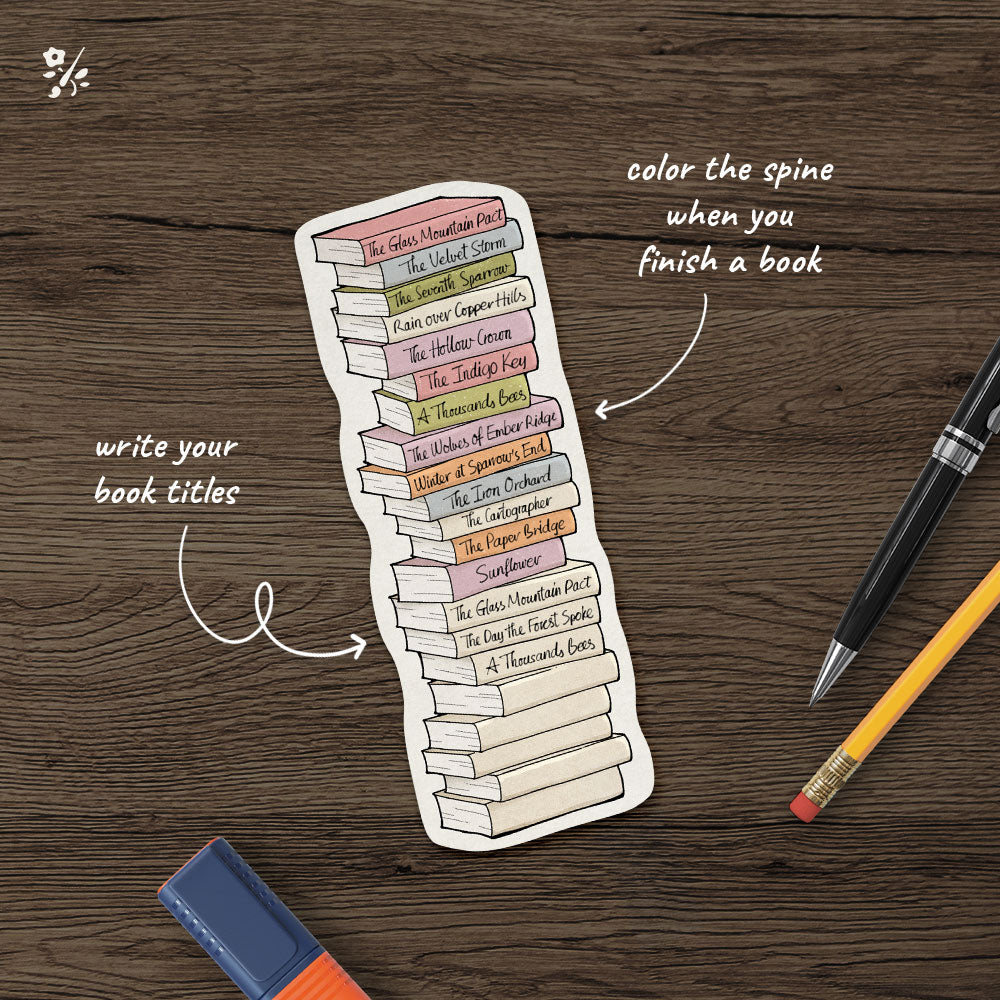 color the spine
when you
finish a book
write your
book titles
The Glass Mountain Pact
The Velvet Storm
The Seventh Sparrow
Rain over Copper Hills
The Hollow Crown
The Indigo Key
A Thousands Bees
The Wolves of Ember Ridge
Winter at Sparrow's End
The Iron Orchard
The Cartographer
The Paper Bridge
Sunflower
The Glass Mountain Pact
The Day the Forest Spoke
A Thousands Bees